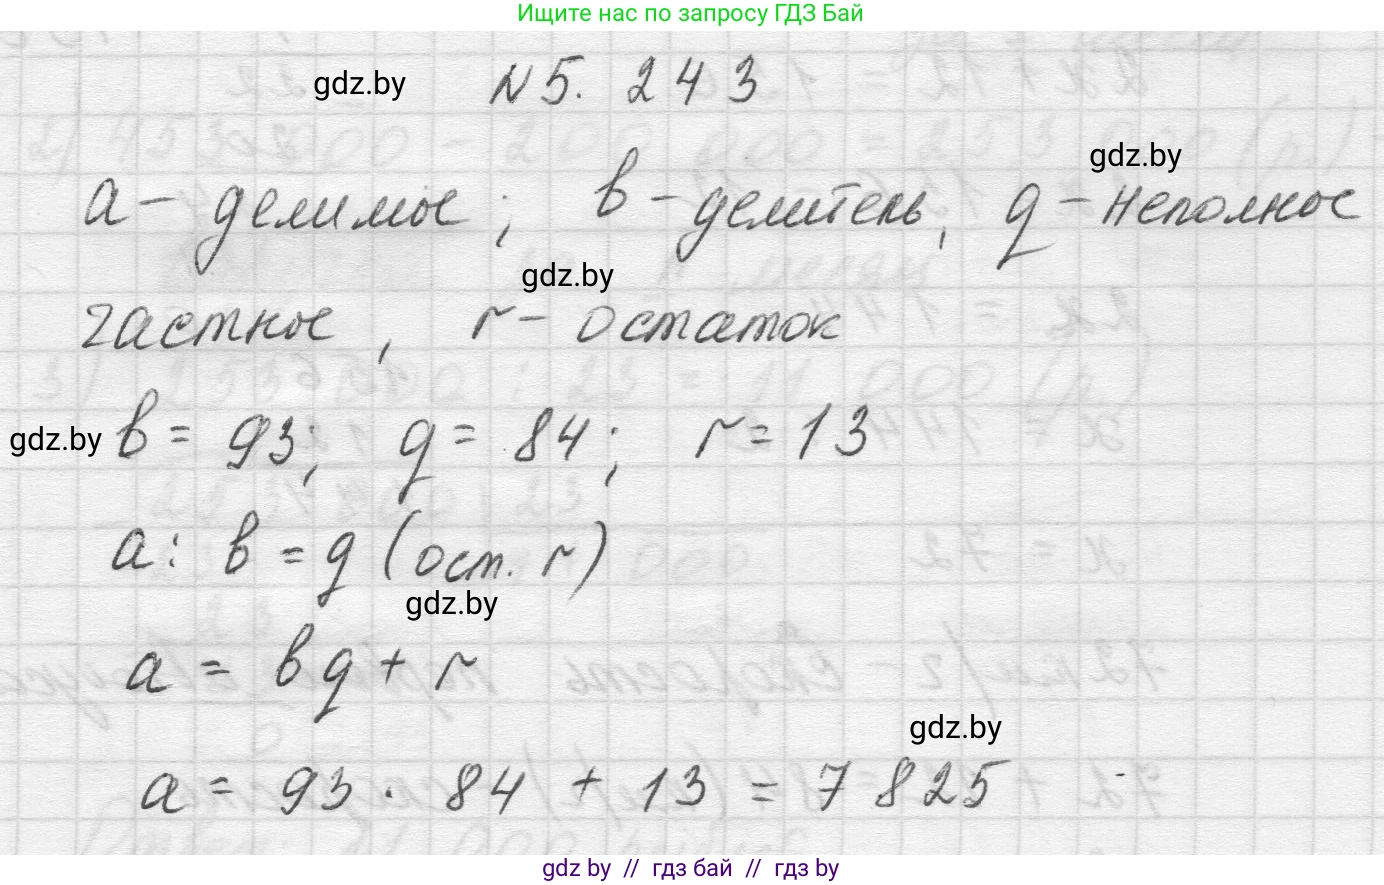 Ищите нас по запросу ГДЗ Бай
gdz.by
N 5. 243
gdz.by
a – делимое ; b – делитель, q – неполное
gdz.by
частное , r – остаток
gdz.by
b = 93; q = 84; r = 13
a : b = q (ост. r)
gdz.by
a = bq + r
gdz.by
a = 93 · 84 + 13 = 7825
gdz by // гдз бай // гдз by